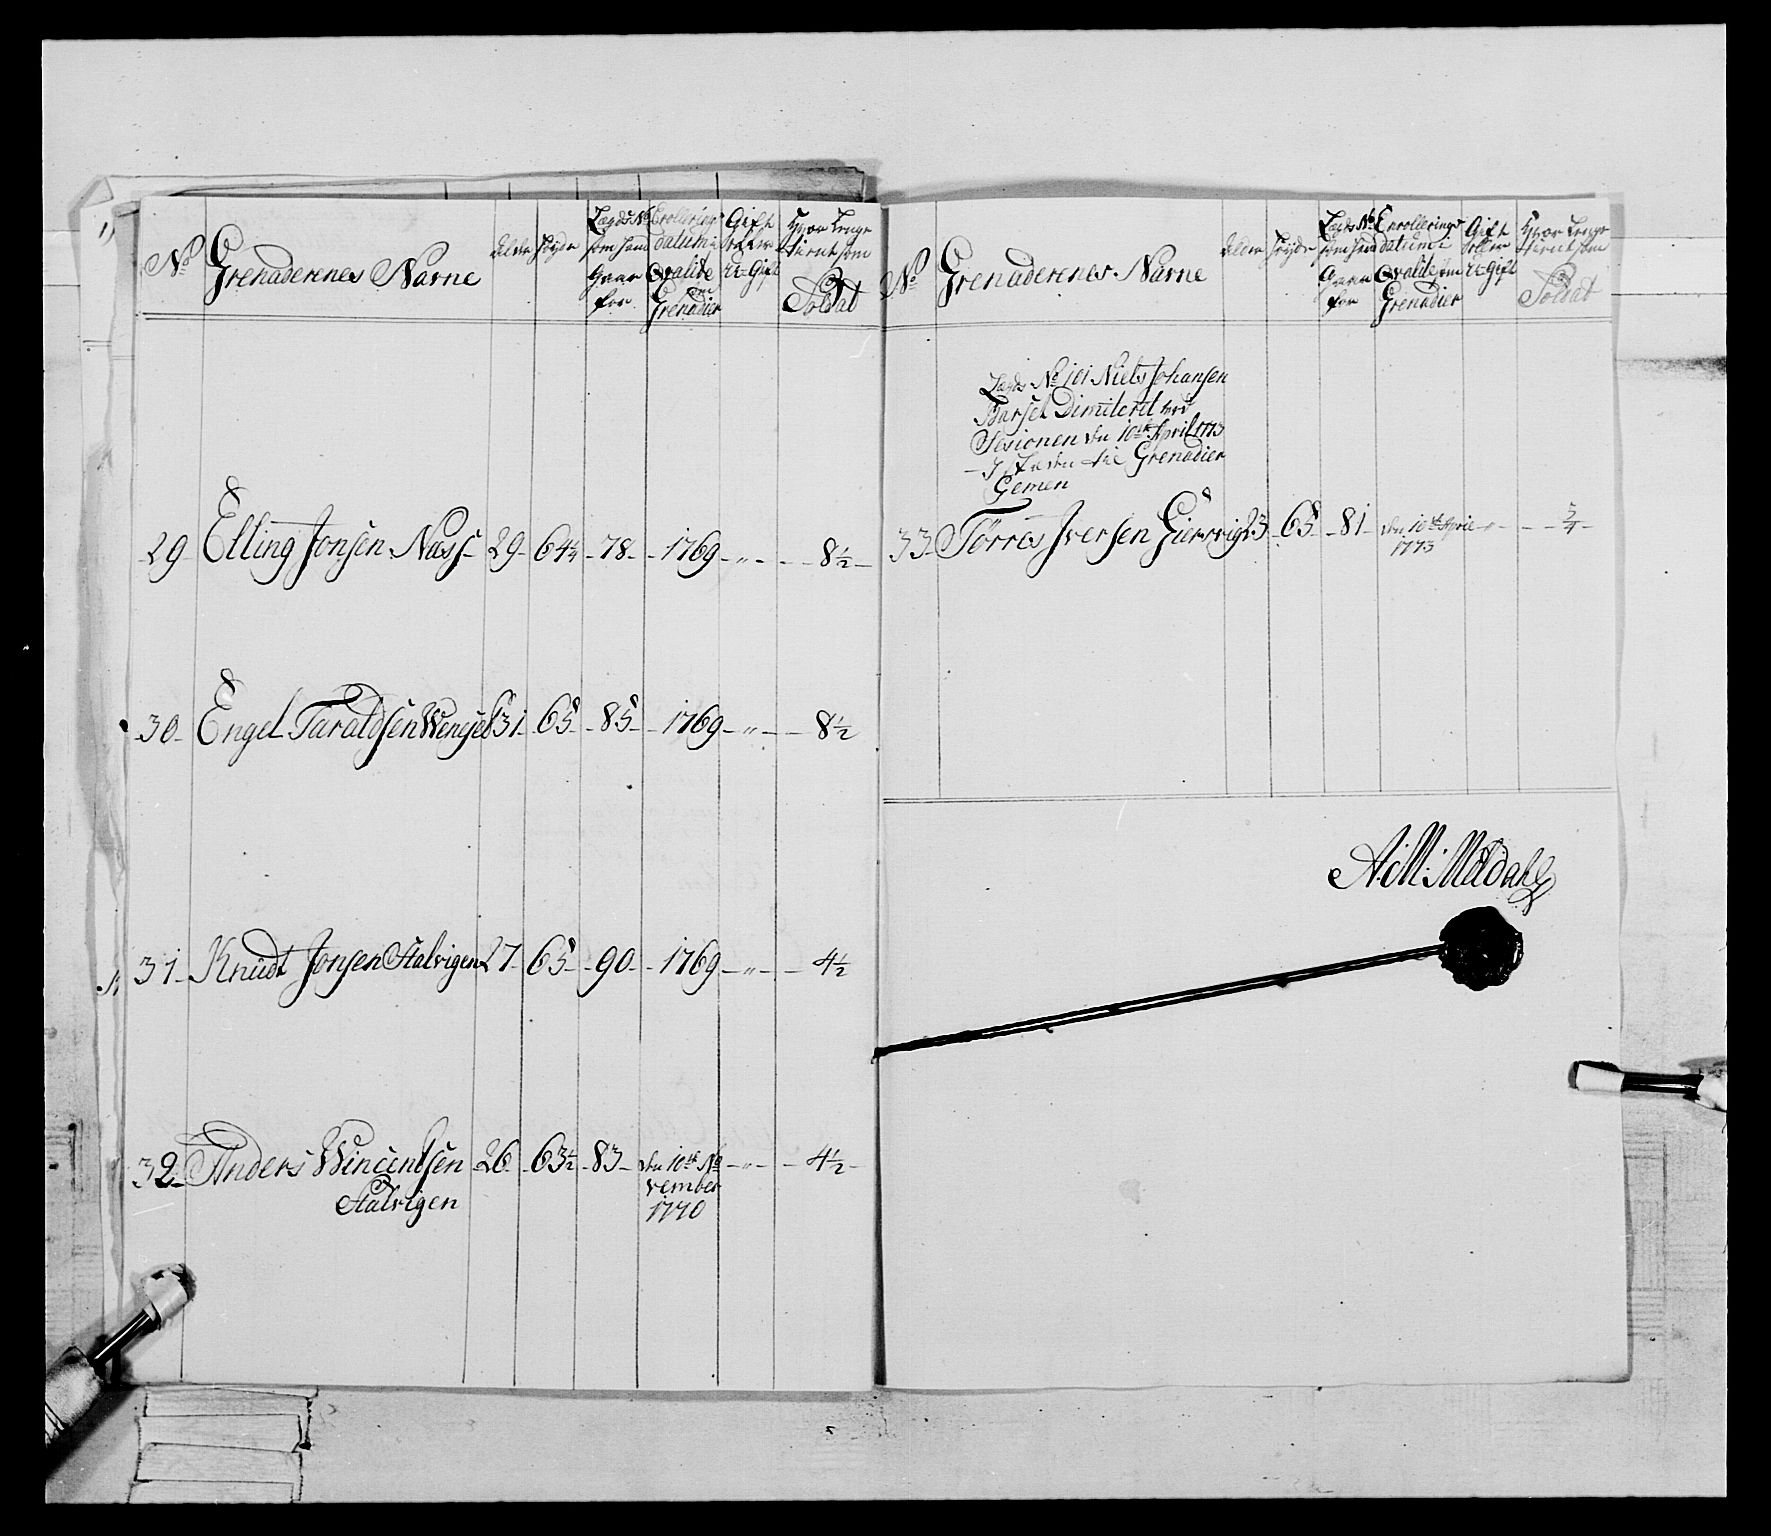 No
Grenaderenes Navne
Alder
Høyde
Lægds No
som hand
Staar
for
Enrollerings
datum i
Qvalite
som
Grenadier
Gift
eller
U-Gift
Hvor Lenge
tient som
Soldat
29 Elling Jonsen Næss 29 64¼ 78 1769 " 8½
30 Engel Taraldsen 31 65 85 1769 " 8½
31 Knudt Jonsen Stalvigen 27 65 90 1769 " 4½
32 Anders Wincentsen 26 63½ 83 den 10de No " 4½
Stalvigen
vember
1770
No
Grenaderenes Navne
Alder
Høyde
Lægds No
som hand
Staar
for
Enrollerings
datum i
Qvalite som
Grenadier
Gift
eller
U-Gift
Hvor Lenge
tient som
Soldat
Lægds No 101 Niels Johansen
Barsel Dimiteret ved
Sesionen den 10de April 1773
I Steden til Grenadier
Gemen
33 Tørres Iversen 23 65 81 den 10de April " ¾
1773
A: M: Meldahl